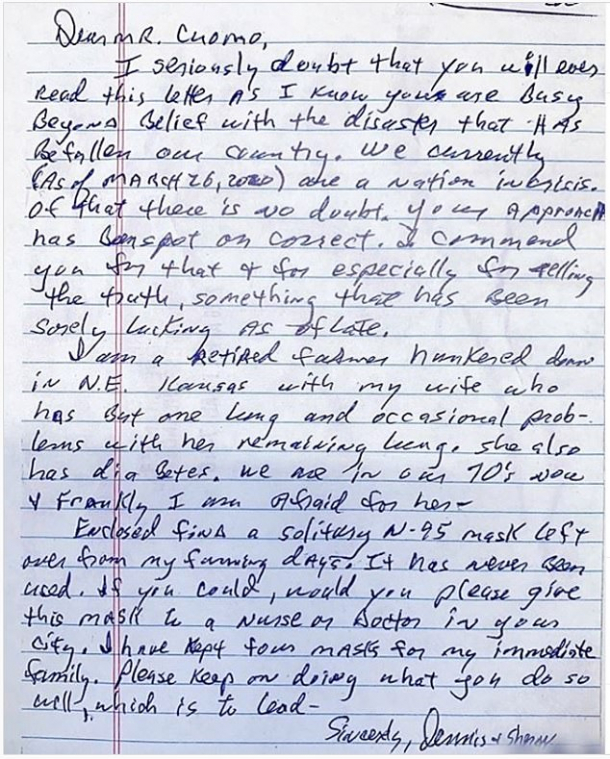 Dear MR. Cuomo,
I seriously doubt that you will ever
read this letter As I know your are Busy
Beyond Belief with the disaster that HAS
Befallen our country. We currently
(As of MARCH 26, 2020) are a nation in crisis.
Of that there is no doubt. your Approach
has Been spot on correct. I commend
you for that & for especially for telling
the truth, something that has Been
sorely lacking As of late.
I am a Retired farmer hunkered down
in N.E. Kansas with my wife who
has But one lung and occasional prob-
lems with her remaining lung. She also
has diaBetes. We are in our 70's now
& Frankly I am Afraid for her-
Enclosed find a solitary N-95 mask left
over from my farming days. It has never Been
used. If you could, would you please give
this mask to a Nurse or Doctor in your
City. I have Kept four masks for my immediate
family. Please Keep on doing what you do so
well, which is to lead-
Sincerely, Dennis & Sharon